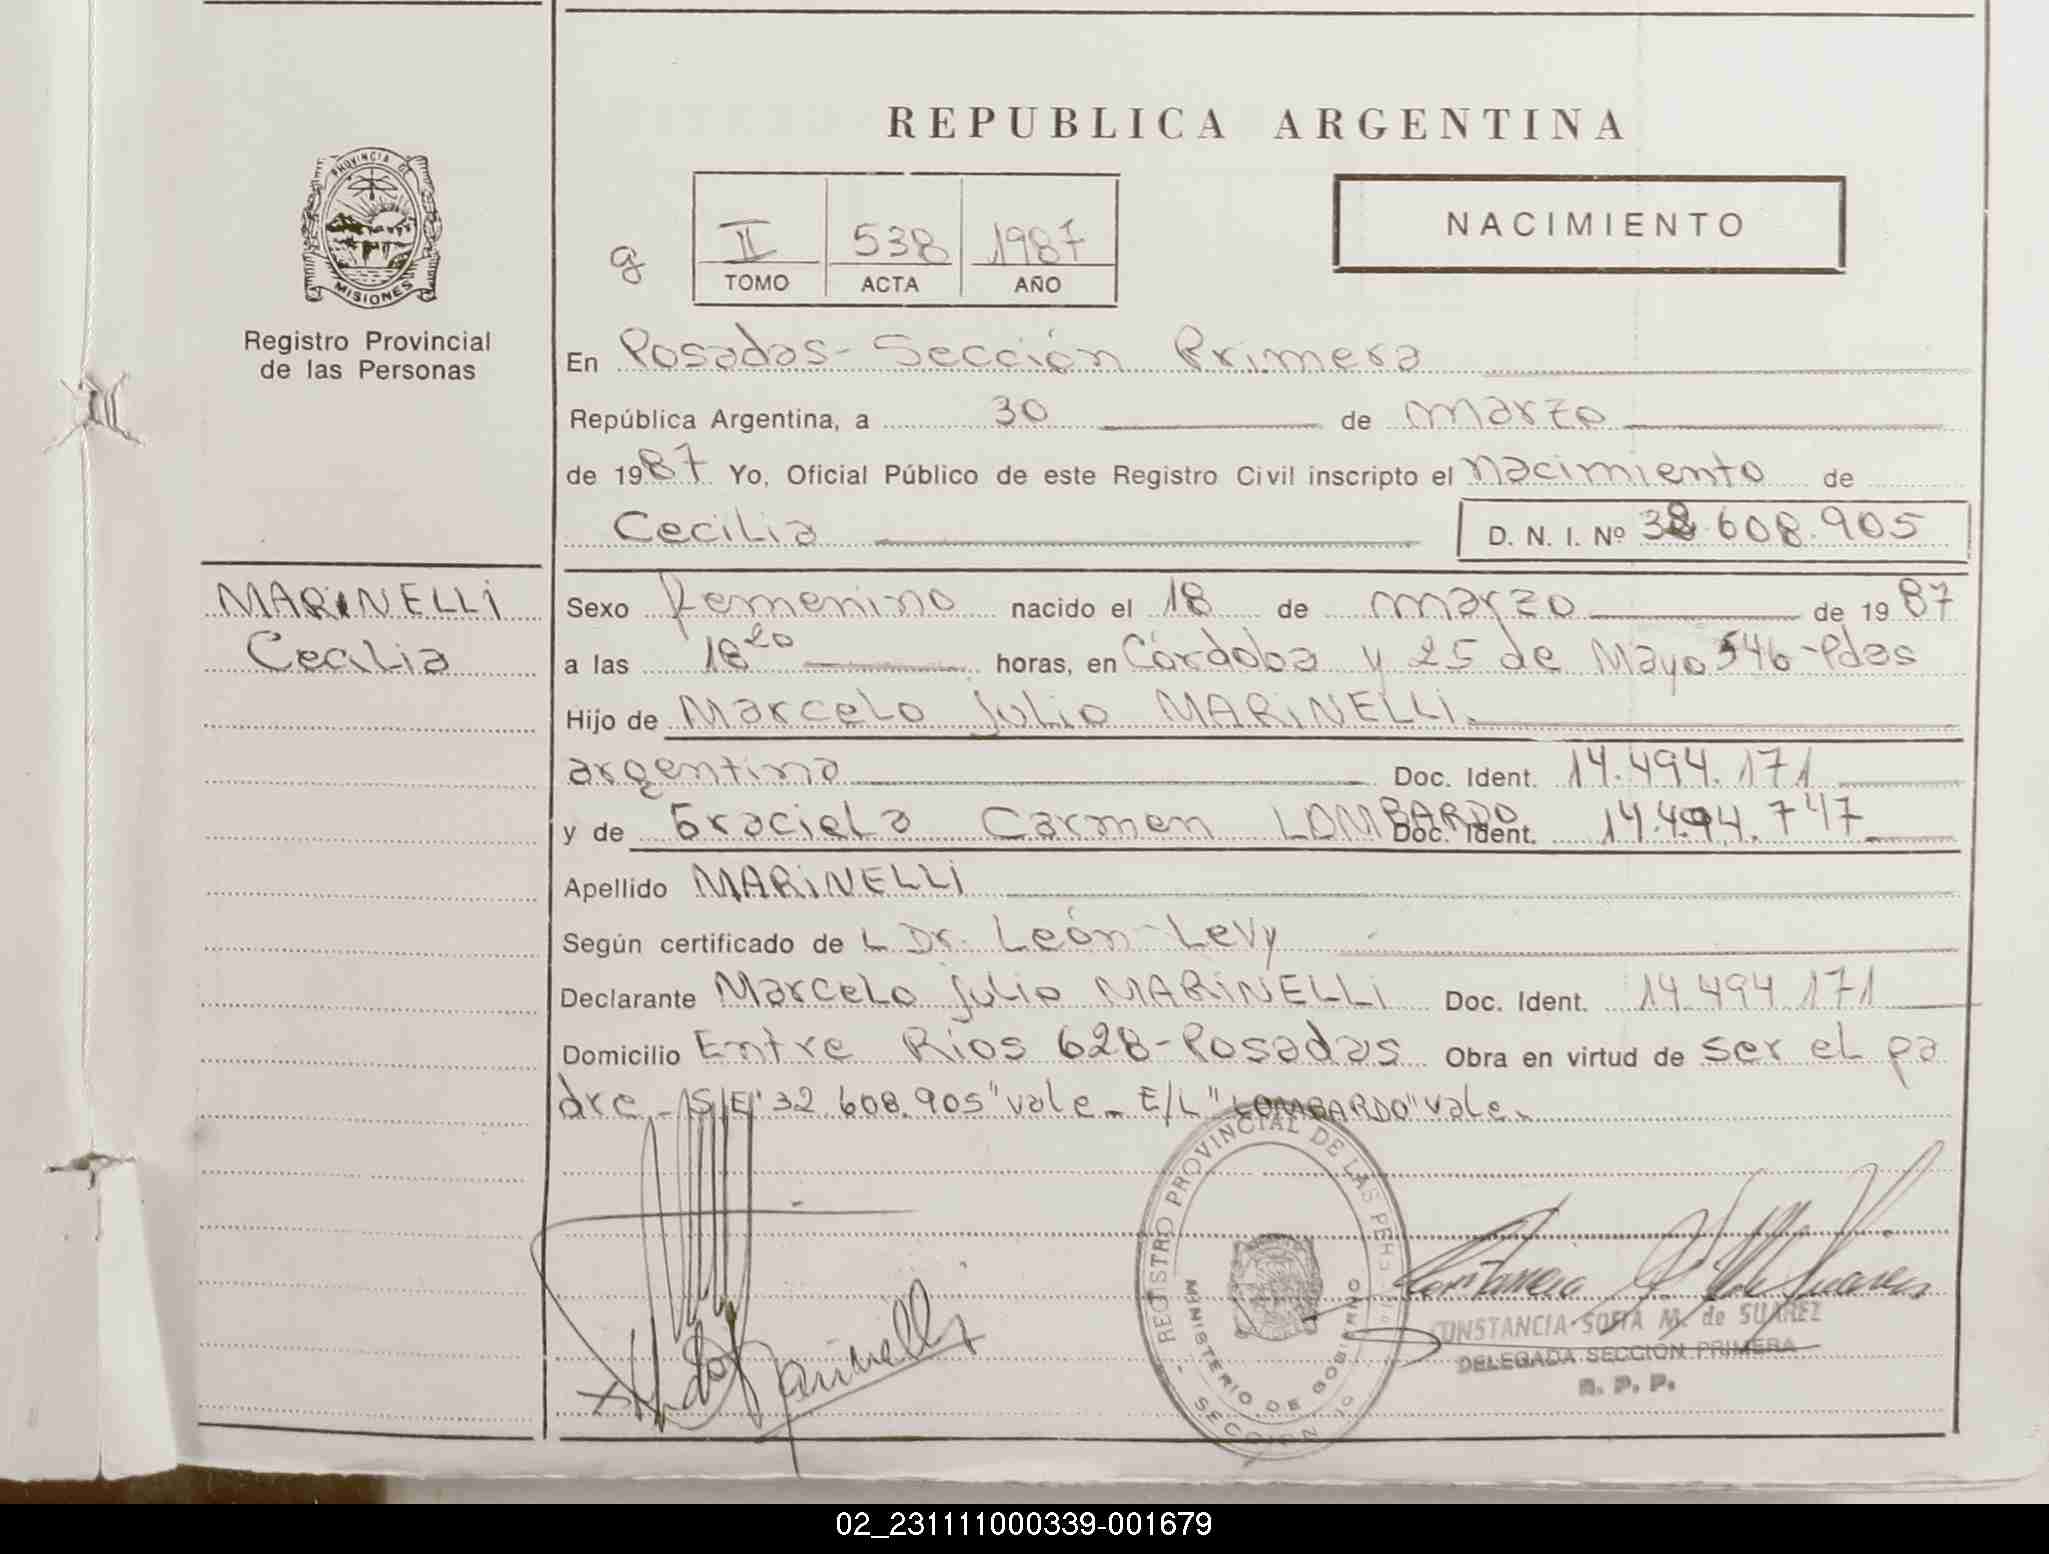 REPUBLICA ARGENTINA
PROVINCIA DE
MISIONES
Registro Provincial
de las Personas
g
II 538 1987
TOMO ACTA AÑO
NACIMIENTO
En Posadas - Sección Primera
República Argentina, a 30 de marzo
de 1987 Yo, Oficial Público de este Registro Civil inscripto el nacimiento de
Cecilia D. N. I. Nº 32.608.905
MARINELLI
Cecilia
Sexo femenino nacido el 18 de marzo de 1987
a las 18 20 horas, en Córdoba y 25 de Mayo 546 - Pdas
Hijo de Marcelo Julio MARINELLI
argentina Doc. Ident. 14.494.171
y de Graciela Carmen LOMBARDO Doc. Ident. 14.494.747
Apellido MARINELLI
Según certificado de L Dr. León Levy
Declarante Marcelo Julio MARINELLI Doc. Ident. 14.494.171
Domicilio Entre Ríos 628 - Posadas Obra en virtud de ser el pa
dre - S/E "32.608.905" vale - E/L "LOMBARDO" vale -
REGISTRO PROVINCIAL DE LAS PERS
MINISTERIO DE GOBIERNO
SECCION
Marinelli
CONSTANCIA SOFIA M. de SUAREZ
DELEGADA SECCION PRIMERA
R. P. P.
02_231111000339-001679